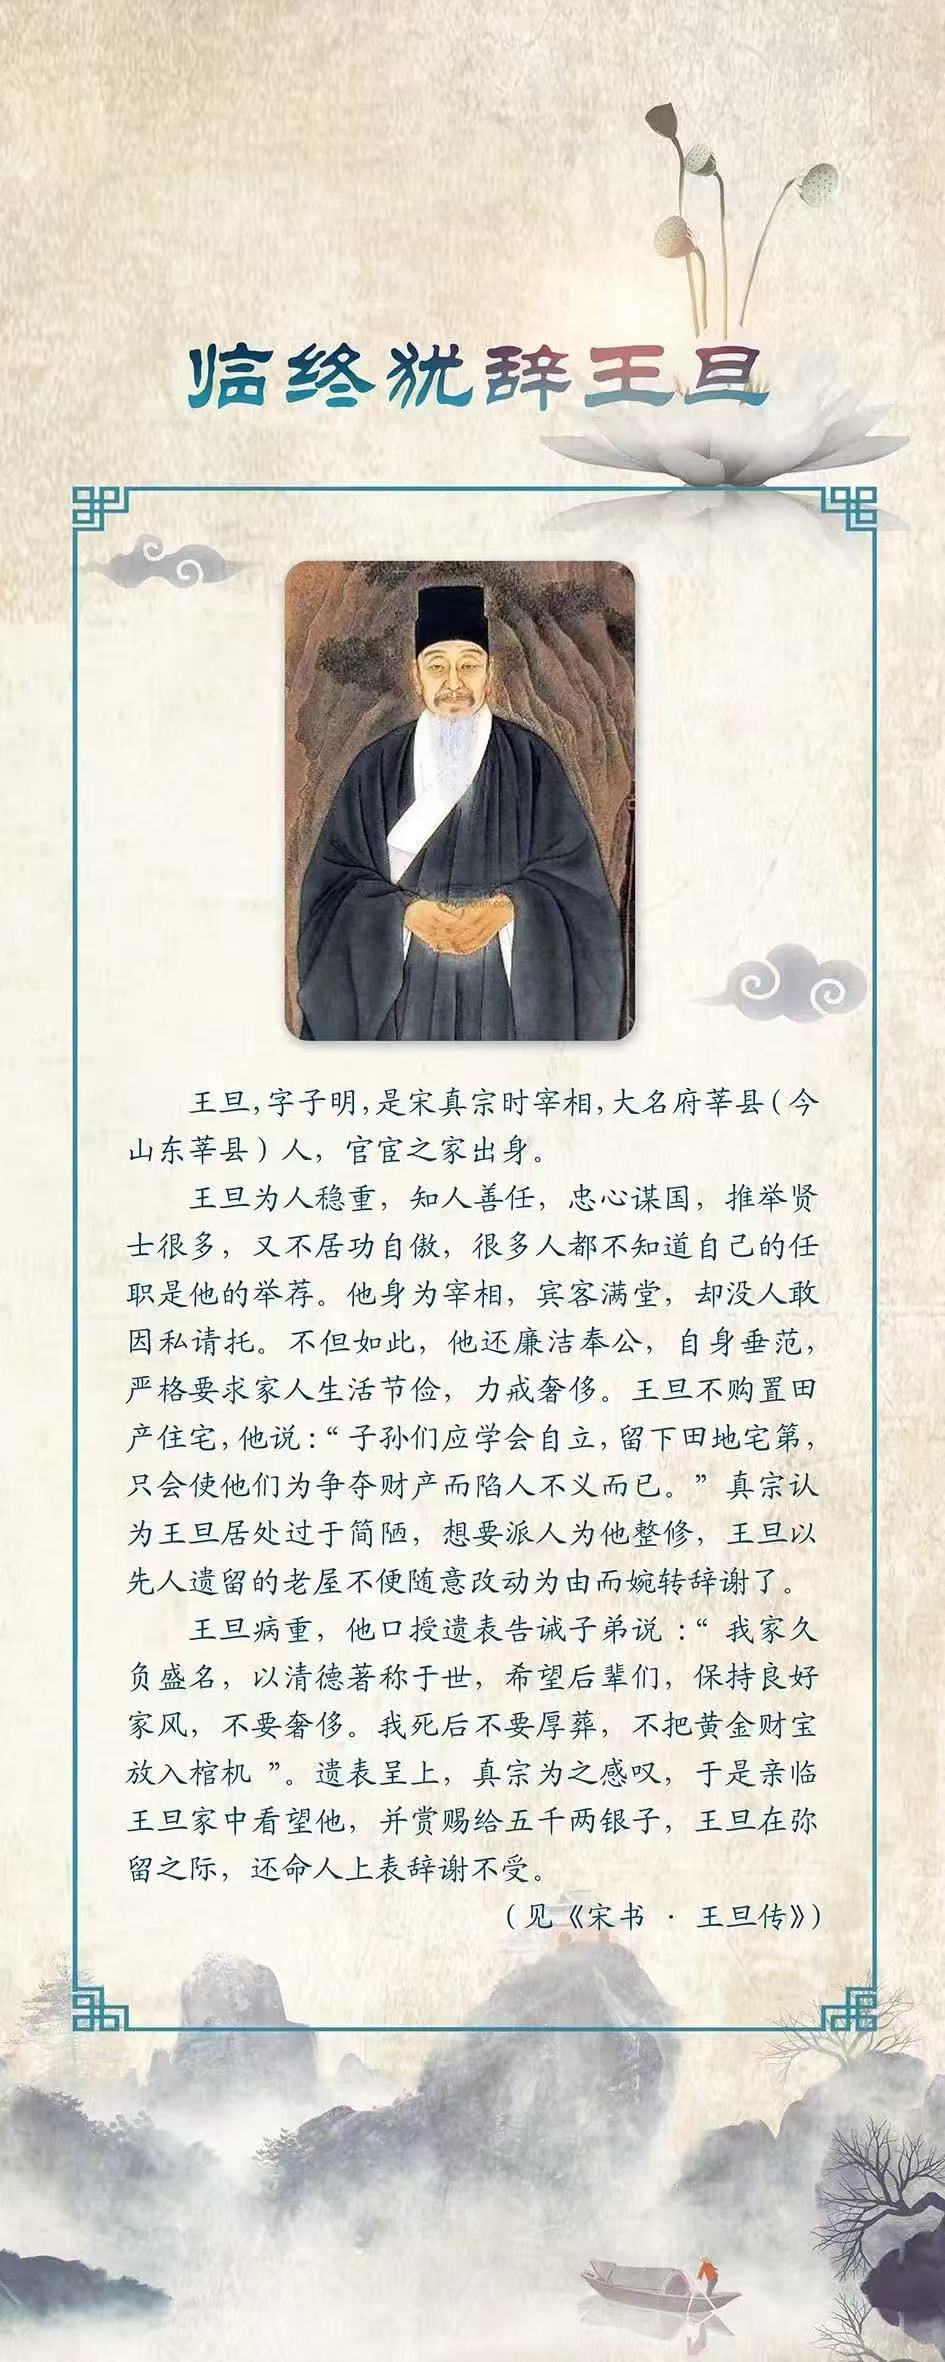 临终犹辞王旦
王旦，字子明，是宋真宗时宰相，大名府莘县（今
山东莘县）人，官宦之家出身。
王旦为人稳重，知人善任，忠心谋国，推举贤
士很多，又不居功自傲，很多人都不知道自己的任
职是他的举荐。他身为宰相，宾客满堂，却没人敢
因私请托。不但如此，他还廉洁奉公，自身垂范，
严格要求家人生活节俭，力戒奢侈。王旦不购置田
产住宅，他说：“子孙们应学会自立，留下田地宅第，
只会使他们为争夺财产而陷人不义而已。”真宗认
为王旦居处过于简陋，想要派人为他整修，王旦以
先人遗留的老屋不便随意改动为由而婉转辞谢了。
王旦病重，他口授遗表告诫子弟说：“我家久
负盛名，以清德著称于世，希望后辈们，保持良好
家风，不要奢侈。我死后不要厚葬，不把黄金财宝
放入棺机 ”。遗表呈上，真宗为之感叹，于是亲临
王旦家中看望他，并赏赐给五千两银子，王旦在弥
留之际，还命人上表辞谢不受。
（见《宋书 · 王旦传》）